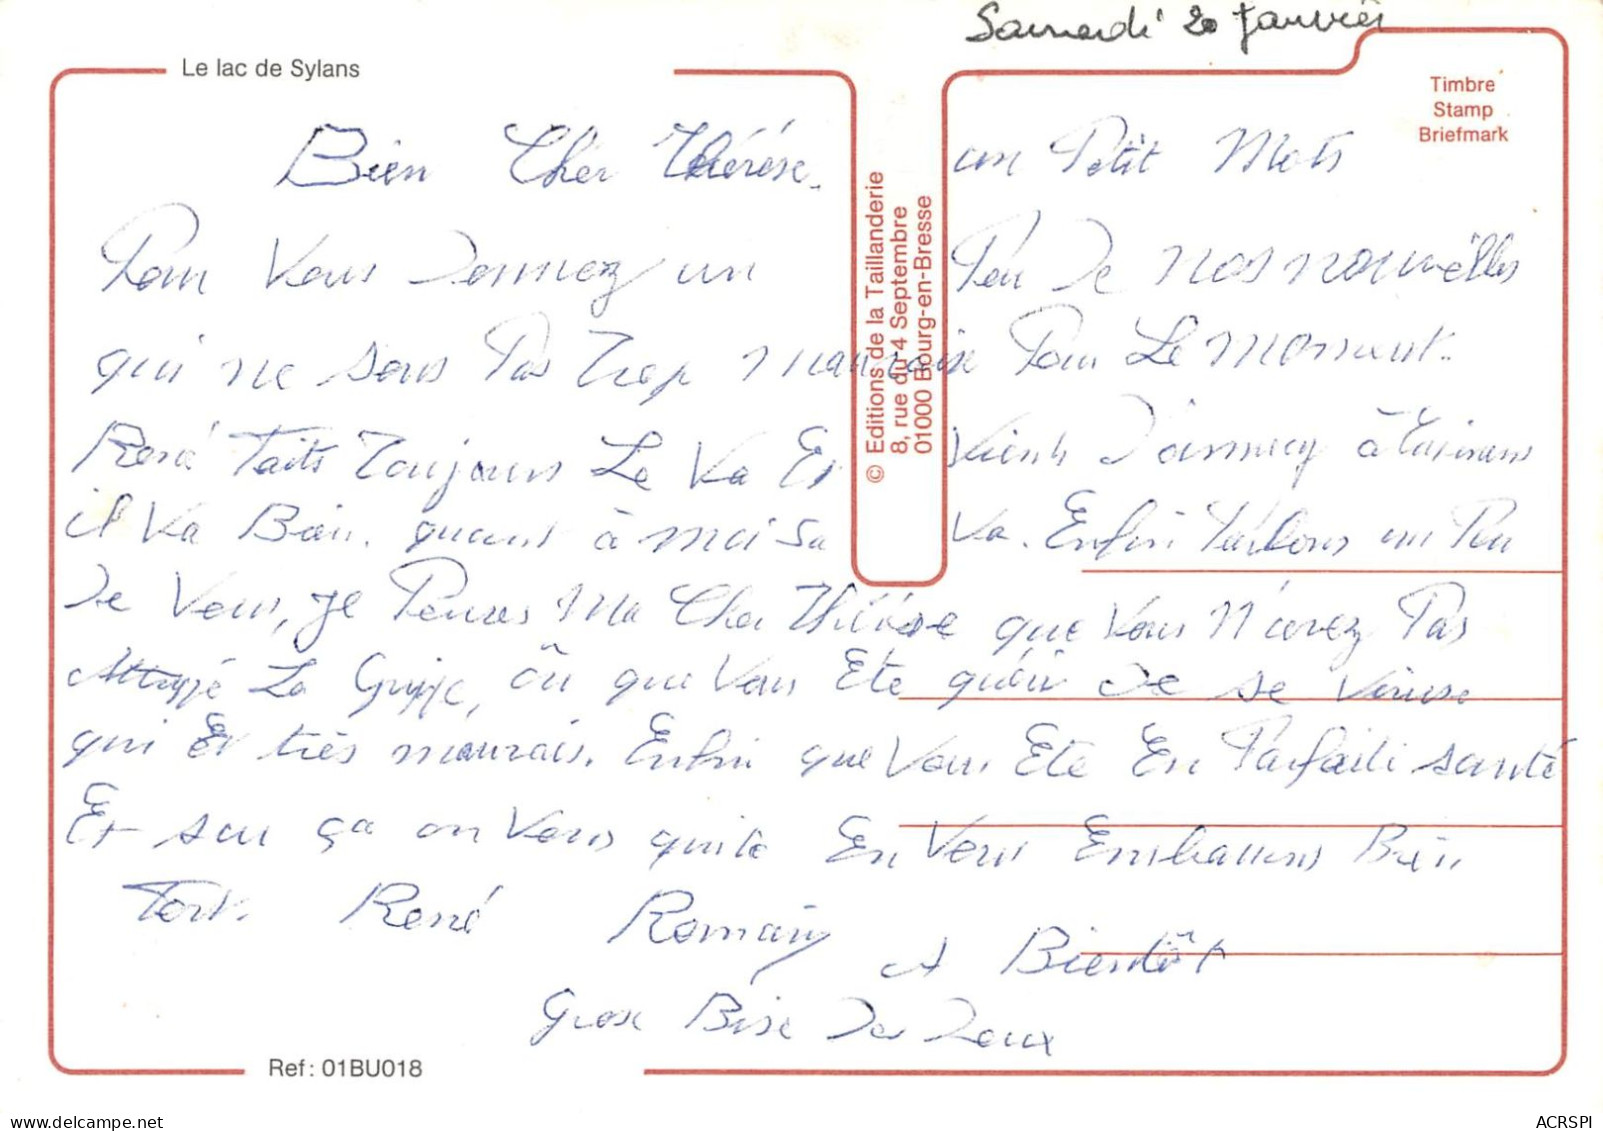 Samedi 20 Janvier
Le lac de Sylans
Timbre
Stamp
Briefmark
Bien Cher Thérèse. un Petit Mots
Pour Vous Donnez un Peu De nos nouvelles
qui ne sons Pas Trop mauvaise Pour Le moment.
René Faits Toujours Le Va Et Vients D'annecy à
il Va Bien. quant à moi sa Va. Enfin Parlons un Peu
De Vous, je Penses Ma Cher Thérèse que Vous N'avez Pas
Attrapé La Grippe, où que Vous Ete quéri de se Viruse
qui Et très mauvais. Enfin que Vous Ete En Parfaite santé
Et sur ça on Vous quite En Vous Embrassens Bien
Fort. René Romain
A Bientôt
Grose Bise Des Deux
© Editions de la Taillanderie
8, rue du 4 Septembre
01000 Bourg-en-Bresse
Ref: 01BU018
www.delcampe.net
ACRSPI